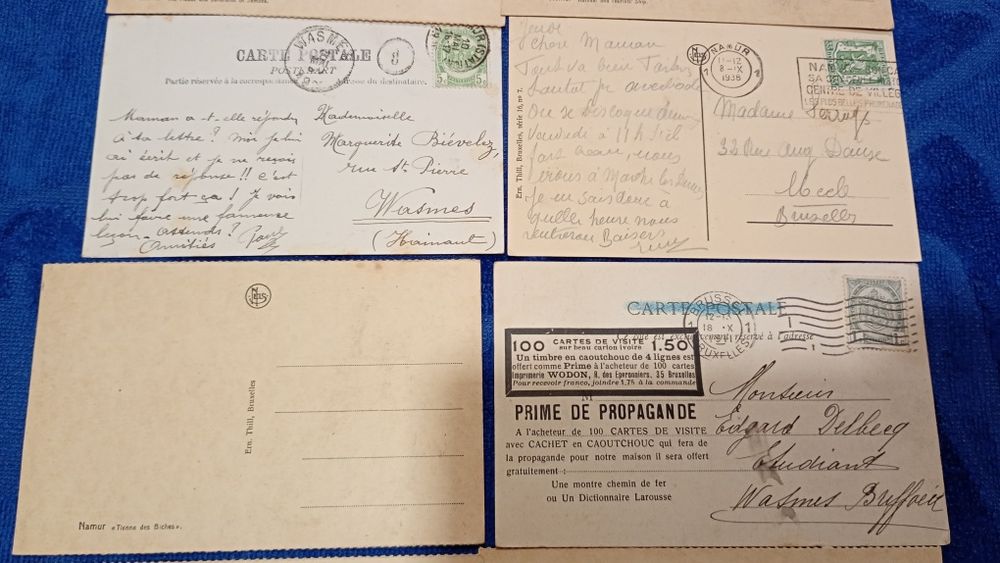 CARTE POSTALE
POST KART
Partie réservée à la correspondance
Adresse du destinataire.
WASMES
8
5c
5c
Maman a-t-elle répondu
à ta lettre ? Moi je lui
ai écrit et je ne reçois
pas de réponse !! C'est
trop fort ça ! Je vais
lui faire une fameuse
leçon
Amitiés
Mademoiselle
Marguerite Biévelez
rue St Pierre
Wasmes
(Hainaut)
Chère Maman
Tout va bien
Vendredi à 11 h s'il
fait beau, nous
irons à Marche les Dames
Je ne sais
quelle heure nous
Baisers
Ern. Thill, Bruxelles, série 16, no 7.
NELS
NAMUR
11-12
8-IX
1938
1
1
CENTRE DE VILLEG
LES PLUS BELLES PROMENADE
Madame
32 Rue Aug Danse
Uccle
Bruxelles
NELS
Ern. Thill, Bruxelles
Namur «Tienne des Biches».
CARTE POSTALE
Ce côté est exclusivement réservé à l'adresse
BRUSSEL
1 18 X 1
BRUXELLES
100 CARTES DE VISITE 1.50
sur beau carton ivoire
Un timbre en caoutchouc de 4 lignes est
offert comme Prime à l'acheteur de 100 cartes
Imprimerie WODON, R. des Eperonniers, 35 Bruxelles
Pour recevoir franco, joindre 1.75 à la commande
M
PRIME DE PROPAGANDE
A l'acheteur de 100 CARTES DE VISITE
avec CACHET en CAOUTCHOUC qui fera de
la propagande pour notre maison il sera offert
gratuitement :
Une montre chemin de fer
ou Un Dictionnaire Larousse
Monsieur
Edgard Delbecq
Etudiant
Wasmes Briffoeil